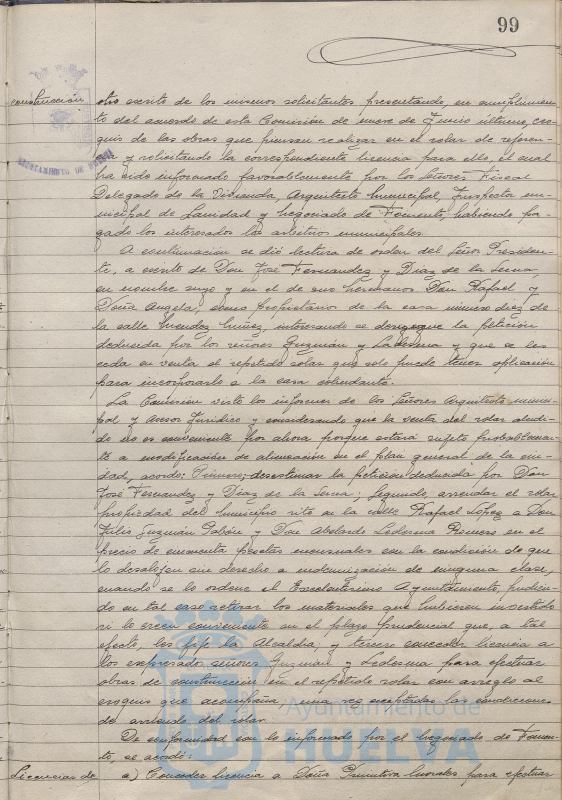 99
construcción otro escrito de los mismos solicitantes presentando, en cumplimien-
to del acuerdo de esta Comisión de nueve de Junio último, cro-
quis de las obras que piensan realizar en el solar de referen-
cia y solicitando la correspondiente licencia para ello, el cual
ha sido informado favorablemente por los Señores Fiscal
Delegado de la Vivienda, Arquitecto municipal, Inspector mu-
nicipal de Sanidad y Negociado de Fomento, habiendo pa-
gado los interesados los arbitrios municipales.
A continuación se dió lectura de orden del Señor Presiden-
te, a escrito de Don José Fernandez y Diaz de la Serna,
en nombre suyo y en el de sus hermanos Don Rafael y
Doña Angela, como propietarios de la casa número diez de
la calle Mendez Núñez, interesando se deniegue la petición
deducida por los señores Guzmán y Ledesma y que se les
ceda en venta el repetido solar que solo puede tener aplicación
para incorporarlo a la casa colindante.
La Comisión vistos los informes de los Señores Arquitecto munici-
pal y Asesor Jurídico y considerando que la venta del solar aludi-
do no es conveniente por ahora porque estará sujeto probablemen-
te a modificación de alineación en el plan general de la ciu-
dad, acordó: Primero; desestimar la petición deducida por Don
José Fernandez y Diaz de la Serna; Segundo, arrendar el solar
propiedad del municipio sito en la calle Rafael López a Don
Julio Guzmán y Don Abelardo Ledesma Romero en el
precio de cincuenta pesetas mensuales con la condición de que
lo desalojen sin derecho a indemnización de ninguna clase,
cuando se lo ordene el Excelentísimo Ayuntamiento, pudien-
do en tal caso retirar los materiales que hubiesen invertido
si lo creen conveniente en el plazo prudencial que, a tal
efecto, les fije la Alcaldía; y tercero conceder licencia a
los expresados señores Guzmán y Ledesma para efectuar
obras de construcción en el repetido solar con arreglo al
croquis que acompaña, una vez aceptadas las condiciones
de arriendo del solar.
De conformidad con lo informado por el Negociado de Fomen-
to, se acordó:
Licencias de a) Conceder licencia a Doña Primitiva Morales para efectuar
AYUNTAMIENTO DE HUELVA
Ayuntamiento de
HUELVA